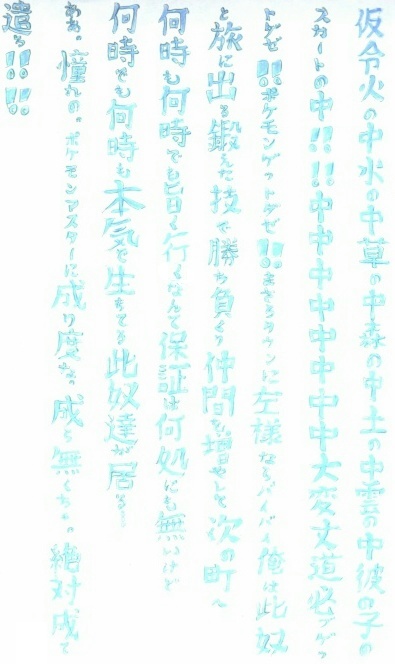 仮令火の中水の中草の中森の中土の中雲の中彼の子の
スカートの中!!!!中中中中中中中大変丈道必ゲッ
トダゼ!!ポケモンゲットダゼ!!まさらタウンに左様ならバイバイ俺は此奴
と旅に出る鍛えた技で勝ち負くり仲間を増やして次の町へ
何時も何時でも旨く行くなんて保証は何処にも無いけど
何時でも何時も本気で生きてる此奴達が居る
ああ。憧れの。ポケモンマスターに成り度な。成ら無くちゃ。絶対成て
遣る!!!!